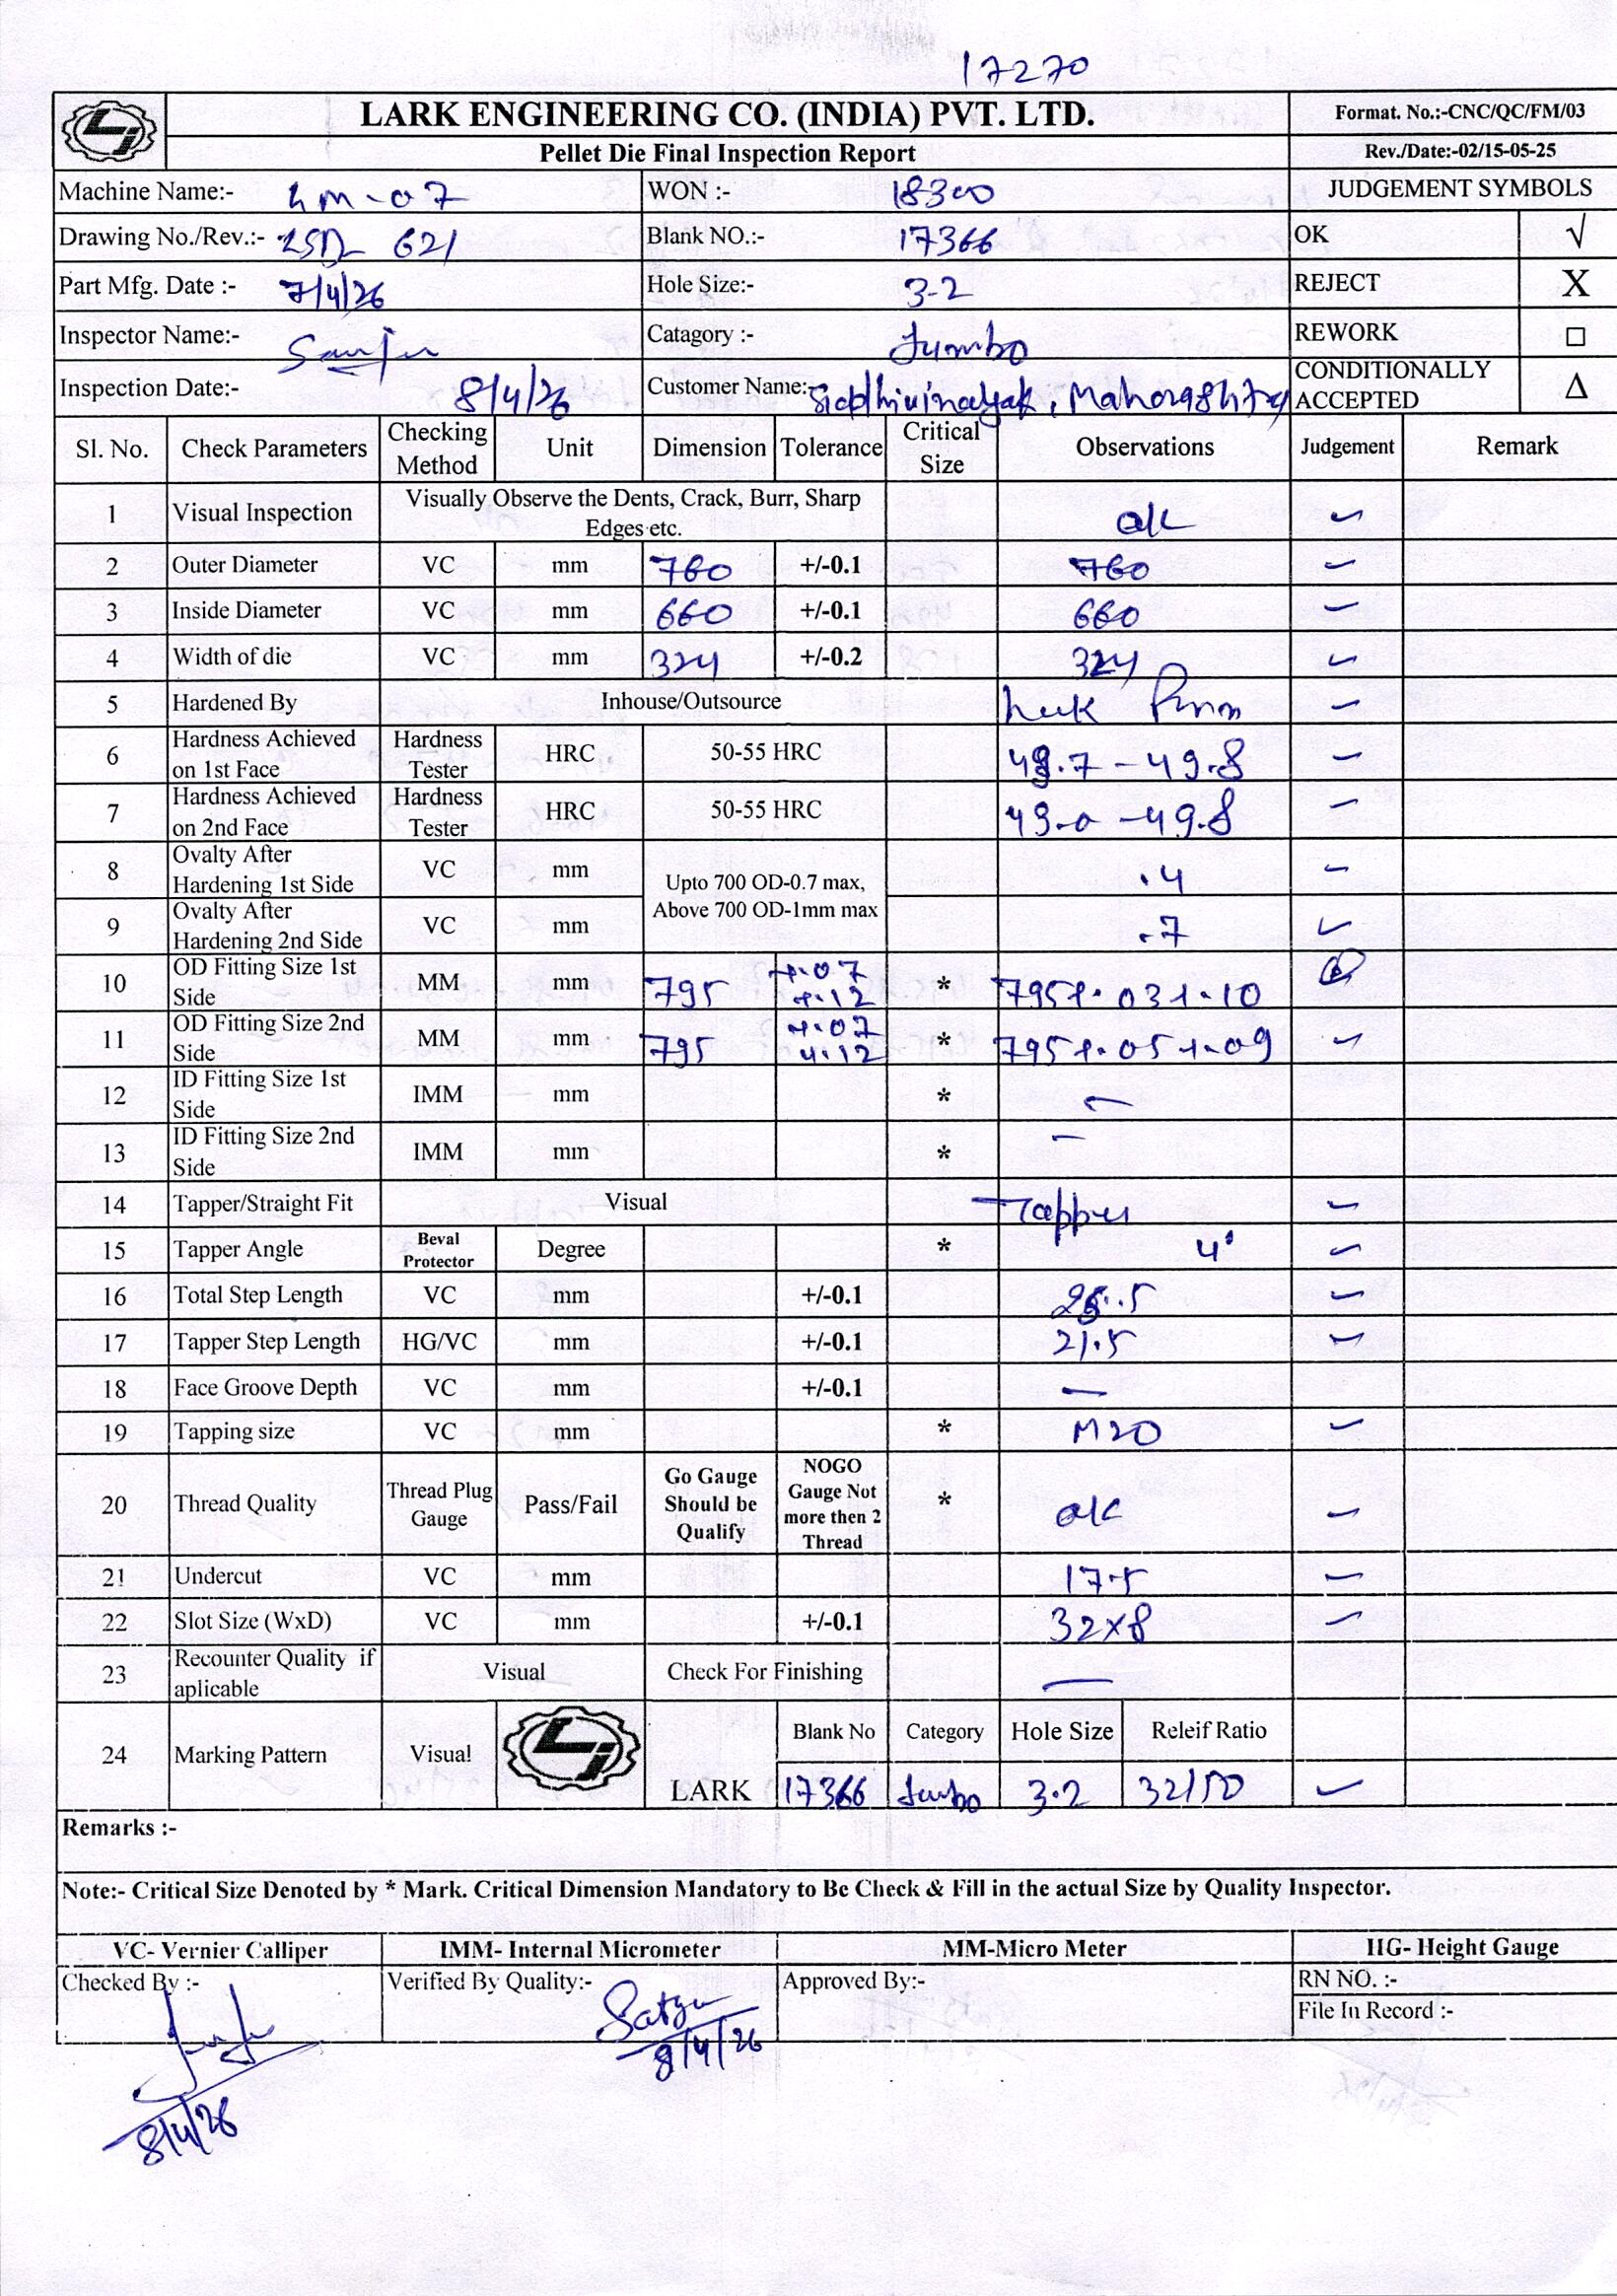 17270
LARK ENGINEERING CO. (INDIA) PVT. LTD.
Format. No.:-CNC/QC/FM/03
Pellet Die Final Inspection Report
Rev./Date:-02/15-05-25
Machine Name:- LM-07 WON :- 18300 JUDGEMENT SYMBOLS
Drawing No./Rev.:- LSD 621 Blank NO.:- 17366 OK √
Part Mfg. Date :- 7/4/26 Hole Size:- 3-2 REJECT X
Inspector Name:- Catagory :- Jumbo REWORK □
Inspection Date:- 8/4/26 Customer Name:- Siddhivinayak, Maharashtra CONDITIONALLY ACCEPTED Δ
Sl. No. Check Parameters Checking Method Unit Dimension Tolerance Critical Size Observations Judgement Remark
1 Visual Inspection Visually Observe the Dents, Crack, Burr, Sharp Edges etc. ok ✓
2 Outer Diameter VC mm 760 +/-0.1 760 ✓
3 Inside Diameter VC mm 660 +/-0.1 660 ✓
4 Width of die VC mm 324 +/-0.2 324 ✓
5 Hardened By Inhouse/Outsource ✓
6 Hardness Achieved on 1st Face Hardness Tester HRC 50-55 HRC -49.8 ✓
7 Hardness Achieved on 2nd Face Hardness Tester HRC 50-55 HRC 49.0 -49.8 ✓
8 Ovalty After Hardening 1st Side VC mm Upto 700 OD-0.7 max, Above 700 OD-1mm max .4 ✓
9 Ovalty After Hardening 2nd Side VC mm .7 ✓
10 OD Fitting Size 1st Side MM mm 795 +.07 +.12 * 795+.03+.10
11 OD Fitting Size 2nd Side MM mm 795 +.07 +.12 * 795+.05+.09 ✓
12 ID Fitting Size 1st Side IMM mm * —
13 ID Fitting Size 2nd Side IMM mm * —
14 Tapper/Straight Fit Visual Tapper ✓
15 Tapper Angle Beval Protector Degree * 4° ✓
16 Total Step Length VC mm +/-0.1 ✓
17 Tapper Step Length HG/VC mm +/-0.1 21.5 ✓
18 Face Groove Depth VC mm +/-0.1 —
19 Tapping size VC mm * M20 ✓
20 Thread Quality Thread Plug Gauge Pass/Fail Go Gauge Should be Qualify NOGO Gauge Not more then 2 Thread * ok ✓
21 Undercut VC mm 17.5 ✓
22 Slot Size (WxD) VC mm +/-0.1 32x8 ✓
23 Recounter Quality if aplicable Visual Check For Finishing —
24 Marking Pattern Visual LARK Blank No Category Hole Size Releif Ratio
17366 Jumbo 3.2 32/50 ✓
Remarks :-
Note:- Critical Size Denoted by * Mark. Critical Dimension Mandatory to Be Check & Fill in the actual Size by Quality Inspector.
VC- Vernier Calliper IMM- Internal Micrometer MM-Micro Meter HG- Height Gauge
Checked By :- Verified By Quality:- Satya Approved By:- RN NO. :-
File In Record :-
8/4/26
8/4/26